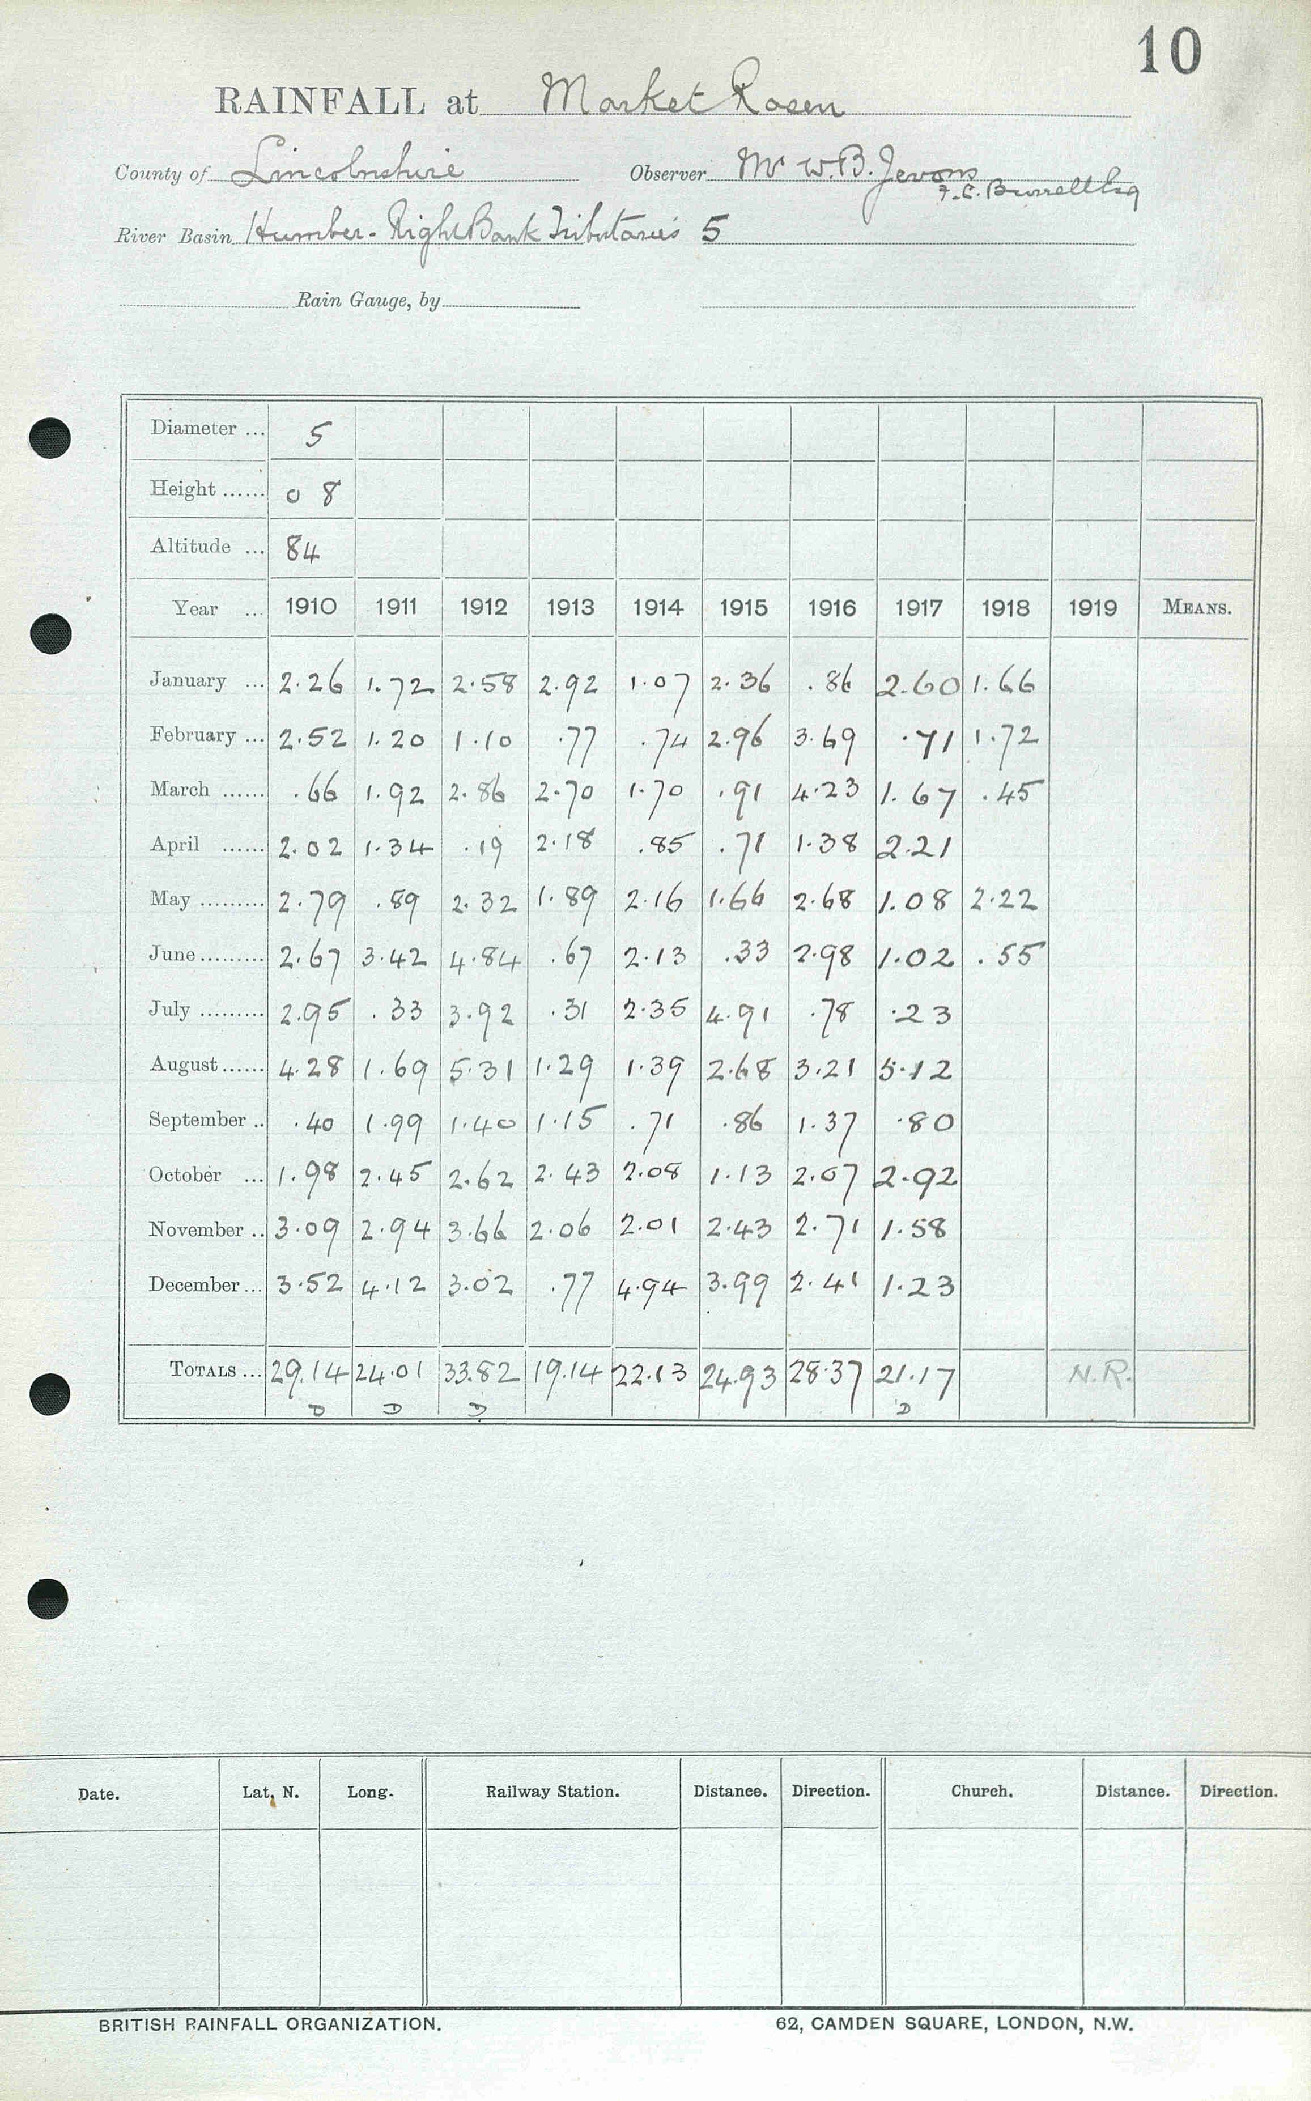 10
RAINFALL at Market Rasen
County of Lincolnshire Observer Mr W.B. Jevons
F.C. Burrell Esq
River Basin Humber - Right Bank Tributaries 5
Rain Gauge, by
Diameter ... 5
Height ...... 0 8
Altitude ... 84
Year ... 1910 1911 1912 1913 1914 1915 1916 1917 1918 1919 MEANS.
January ... 2.26 1.72 2.58 2.92 1.07 2.36 .86 2.60 1.66
February ... 2.52 1.20 1.10 .77 .74 2.96 3.69 .71 1.72
March ...... .66 1.92 2.86 2.70 1.70 .91 4.23 1.67 .45
April ...... 2.02 1.34 .19 2.18 .85 .71 1.38 2.21
May ......... 2.79 .89 2.32 1.89 2.16 1.66 2.68 1.08 2.22
June ......... 2.67 3.42 4.84 .67 2.13 .33 2.98 1.02 .55
July ......... 2.95 .33 3.92 .31 2.35 4.91 .78 .23
August ...... 4.28 1.69 5.31 1.29 1.39 2.68 3.21 5.12
September .. .40 1.99 1.40 1.15 .71 .86 1.37 .80
October ... 1.98 2.45 2.62 2.43 2.08 1.13 2.07 2.92
November .. 3.09 2.94 3.66 2.06 2.01 2.43 2.71 1.58
December ... 3.52 4.12 3.02 .77 4.94 3.99 2.41 1.23
TOTALS ... 29.14 24.01 33.82 19.14 22.13 24.93 28.37 21.17 N.R.
D D D D
Date. Lat, N. Long. Railway Station. Distance. Direction. Church. Distance. Direction.
BRITISH RAINFALL ORGANIZATION. 62, CAMDEN SQUARE, LONDON, N.W.